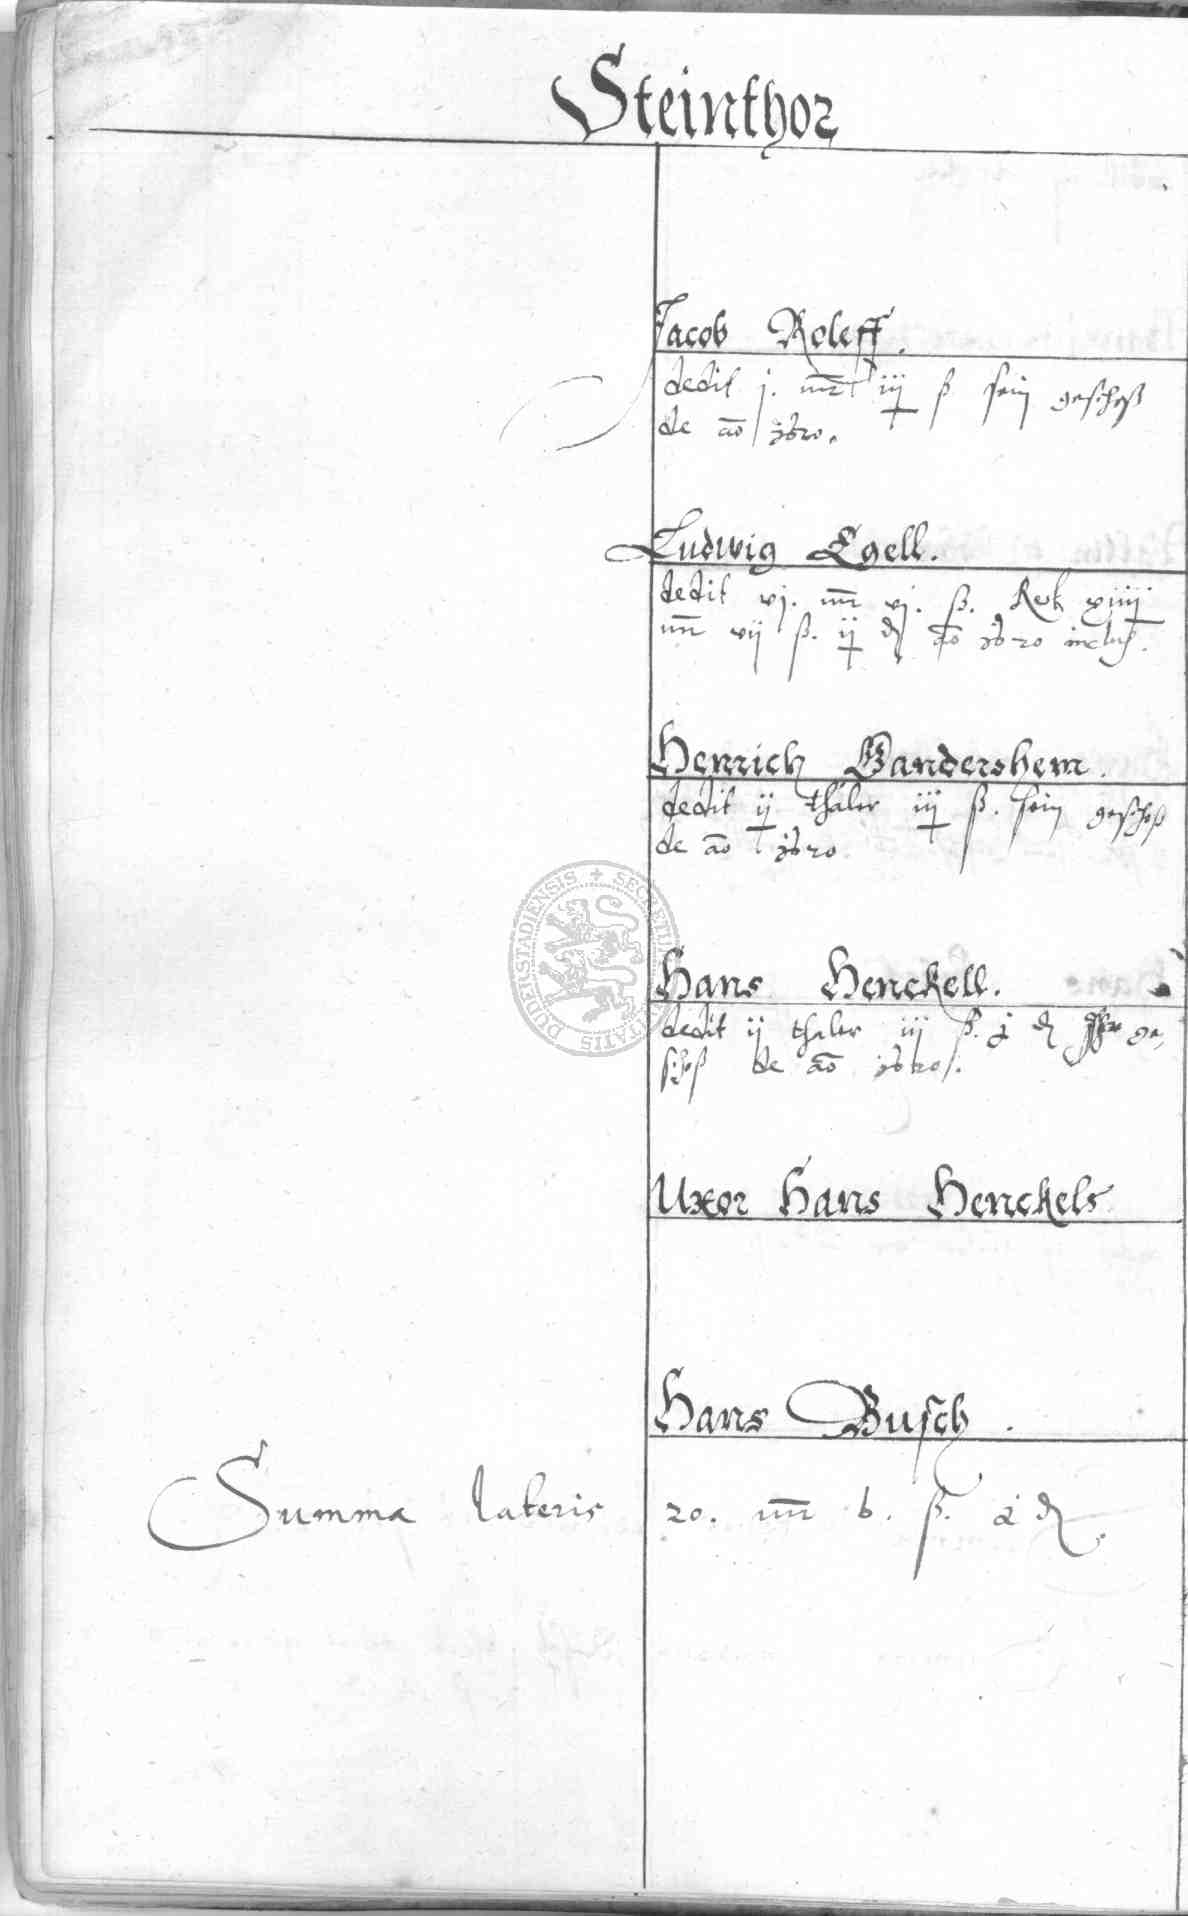 Steinthor
Jacob Roleff.
dedit j. mr iij ß sein geschoß
de ao 1620.
Ludwig Egell.
dedit vj. mr vj. ß. Rest xiiij
mr vij ß. ij d ao 1620 inclus.
Henrich Gandershem.
dedit ij thaler iij ß. sein geschoß
de ao 1620
Hans Henckell.
dedit ij thaler iij ß. d ge,
schoß de ao 1620.
Uxor Hans Henckels
Hans Busch.
Summa lateris 20. mr 6. ß. d
DUDERSTADIENSIS + SECRETUM CIVITATIS